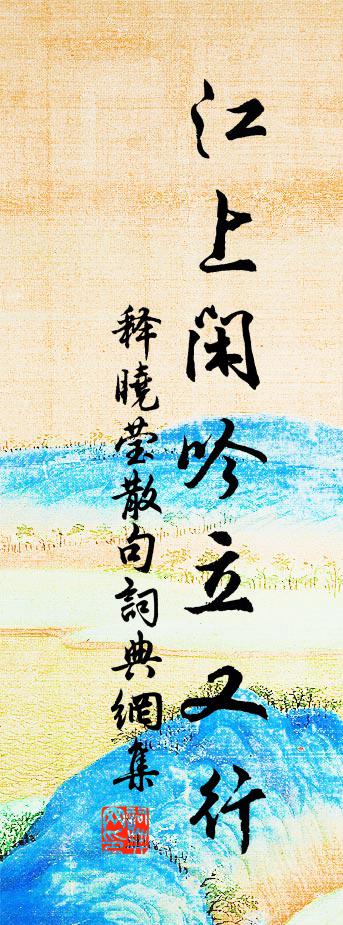 江上闲吟立又行
释曉莹散句詞典網集